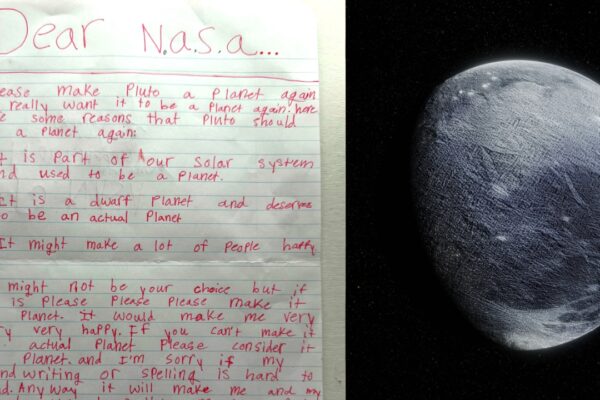 Dear N.a.s.a...
ease make Pluto a Planet again
really want it to be a Planet again. here
e some reasons that Pluto should
a Planet again:
t is Part of our solar system
nd used to be a Planet.
It is a dwarf Planet and deserves
o be an actual Planet
It might make a lot of People happy
might not be your choice but if
is Please Please Please make it
Planet. It would make me very
ry very happy. If you can't make it
actual Planet Please consider it
Planet. and I'm sorry if my
nd writing or spelling is hard to
d. Any way it will make me and my